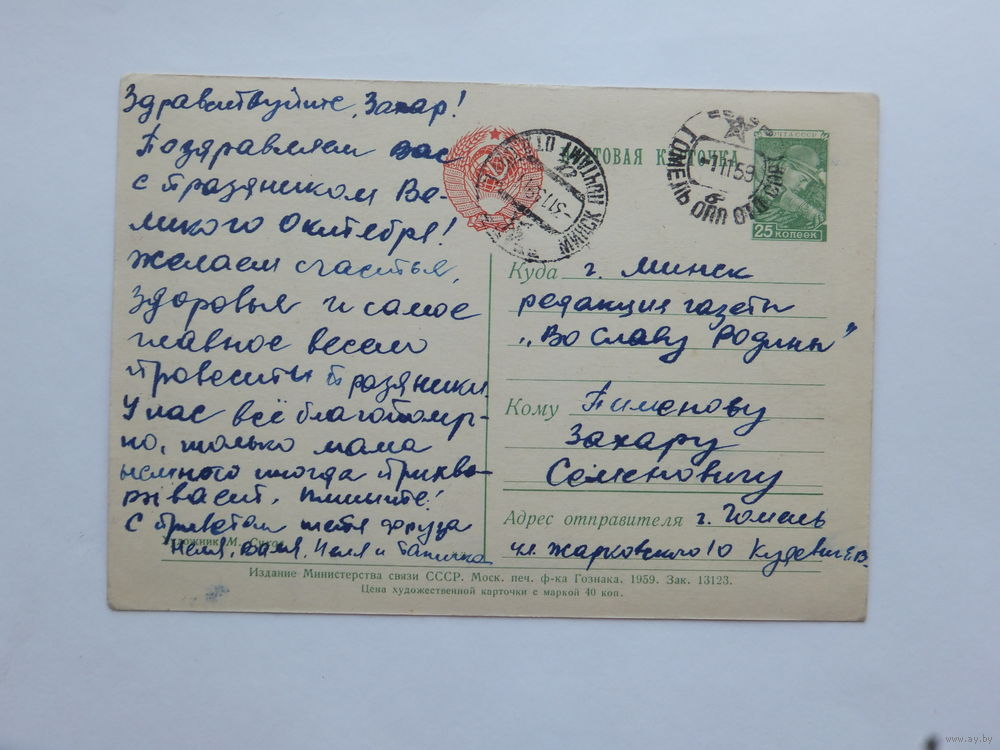 Здравствуйте, Захар!
Поздравляем вас
с праздником Ве-
ликого Октября!
Желаем счастья,
здоровья и самое
главное весело
провести праздники.
У нас всё благополуч-
но, только мама
немного иногда прихва-
рывает. Пишите!
С приветом тётя Фруза
Неля, Валя, Неля и Таничка
Художник М.
ПОЧТОВАЯ КАРТОЧКА
МИНСК ПОЧТАМТ
-3 11 59
ГОМЕЛЬ ОПП ОТД СОРТ
-1 11 59
б
ПОЧТА СССР
25 копеек
Куда г. Минск
редакция газеты
„Во славу Родины"
Кому Пименову
Захару
Семеновичу
Адрес отправителя г. Гомель
ул. Жарковского 10 Кудевич Е.В.
Издание Министерства связи СССР. Моск. печ. ф-ка Гознака. 1959. Зак. 13123.
Цена художественной карточки с маркой 40 коп.
www.ay.by